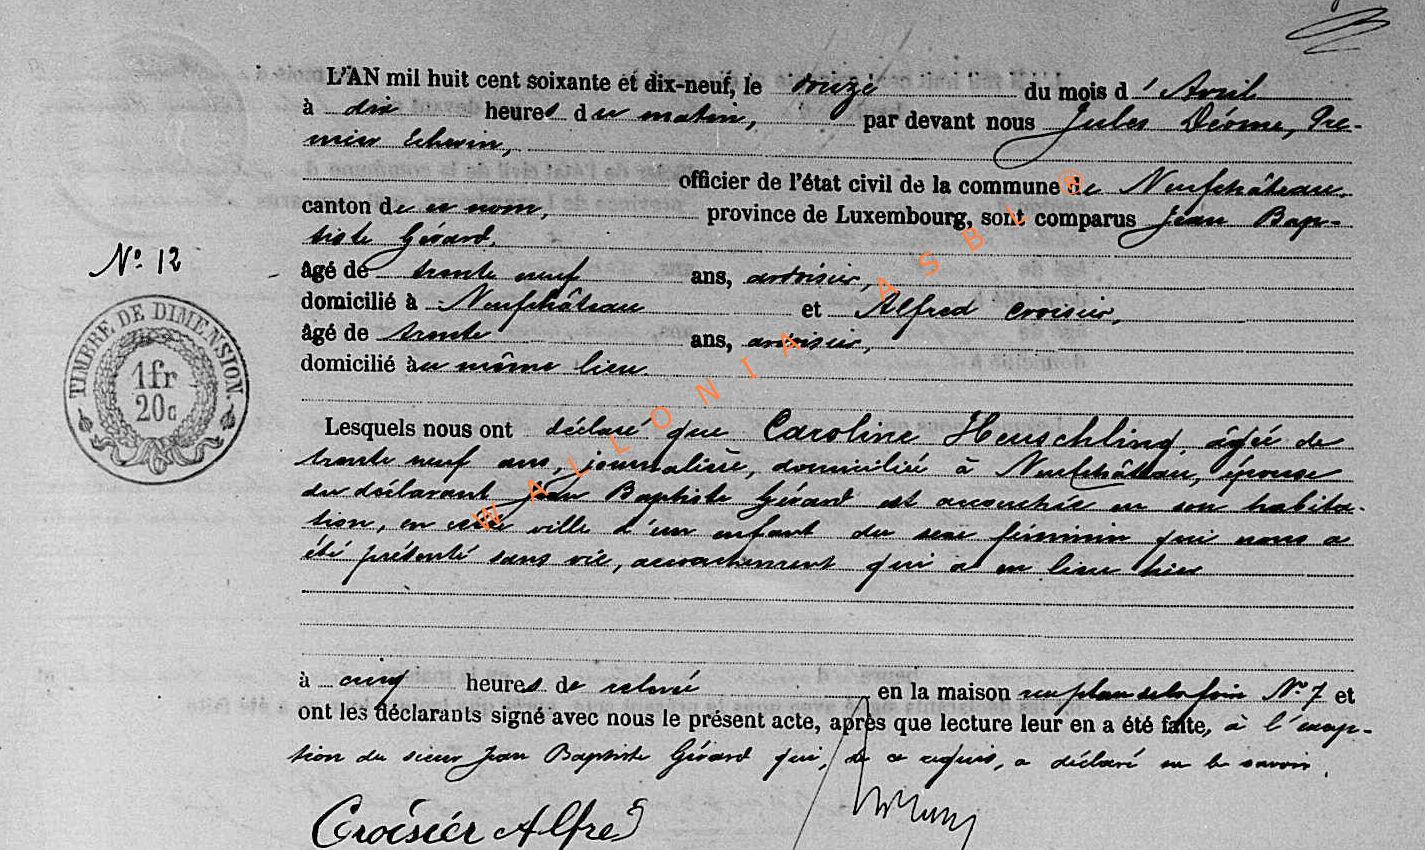 L'AN mil huit cent soixante et dix-neuf, le onze du mois d'Avril
à dix heures du matin, par devant nous Jules Dérome, Pre-
mier Echevin,
officier de l'état civil de la commune de Neufchâteau,
canton de ce nom, province de Luxembourg, sont comparus Jean Bap-
tiste Gérard,
N° 12
âgé de trente neuf ans, ardoisier,
domicilié à Neufchâteau et Alfred Croisier,
âgé de trente ans, ardoisier,
domicilié au même lieu.
TIMBRE DE DIMENSION.
1fr
20c
Lesquels nous ont déclaré que Caroline Heuschling, âgée de
trente neuf ans, journalière, domiciliée à Neufchâteau, épouse
du déclarant Jean Baptiste Gérard est accouchée en son habita-
tion, en cette ville d'un enfant du sexe féminin qui nous a
été présenté sans vie, accouchement qui a eu lieu hier
à cinq heures de relevé en la maison N° 7 et
ont les déclarants signé avec nous le présent acte, après que lecture leur en a été faite, à l'excep-
tion du sieur Jean Baptiste Gérard qui, de ce requis, a déclaré ne le savoir.
Croisier Alfred
WALLONIA ASBL ®